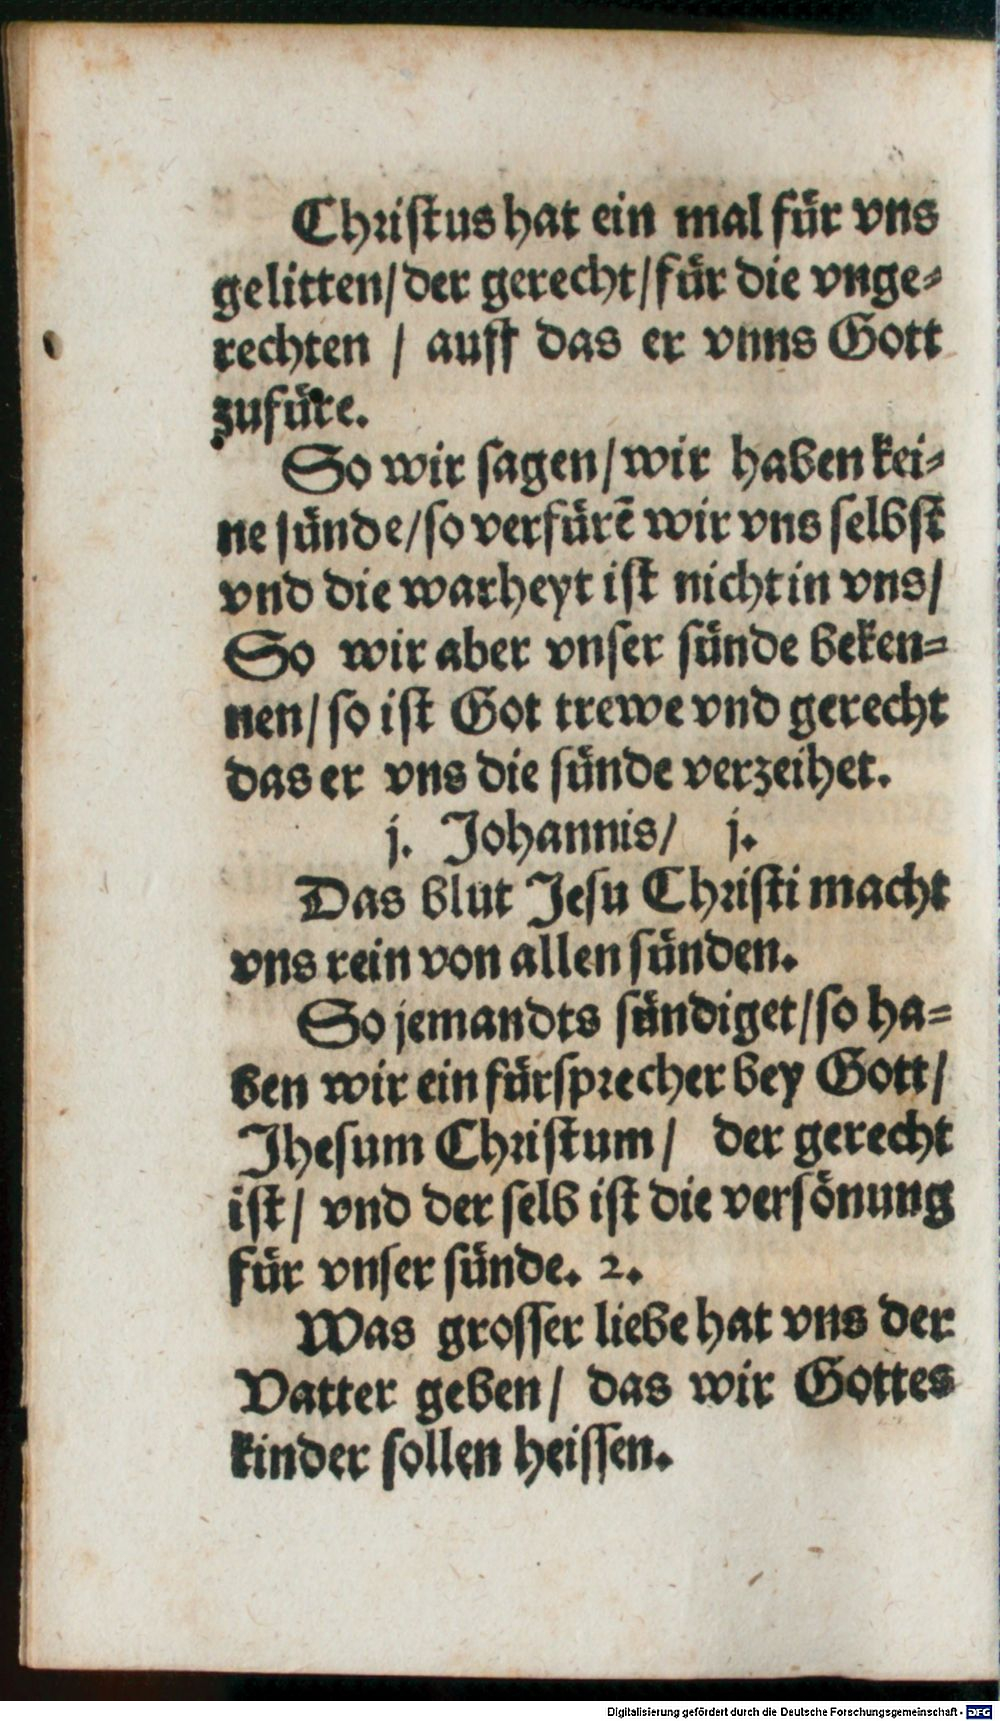 Christus hat ein mal für vns
gelitten/ der gerecht/ für die vnge⸗
rechten / auff das er vnns Gott
zufüre.
So wir sagen/ wir haben kei⸗
ne sünde/ so verfürē wir vns selbst
vnd die warheyt ist nicht in vns/
So wir aber vnser sünde beken⸗
nen/ so ist Got trewe vnd gerecht
das er vns die sünde verzeihet.
j. Johannis/ j.
Das blut Jesu Christi macht
vns rein von allen sünden.
So jemandts sündiget/ so ha⸗
ben wir ein fürsprecher bey Gott/
Jhesum Christum/ der gerecht
ist/ vnd der selb ist die versönung
für vnser sünde. 2.
Was grosser liebe hat vns der
Vatter geben/ das wir Gottes
kinder sollen heissen.
Digitalisierung gefördert durch die Deutsche Forschungsgemeinschaft - DFG